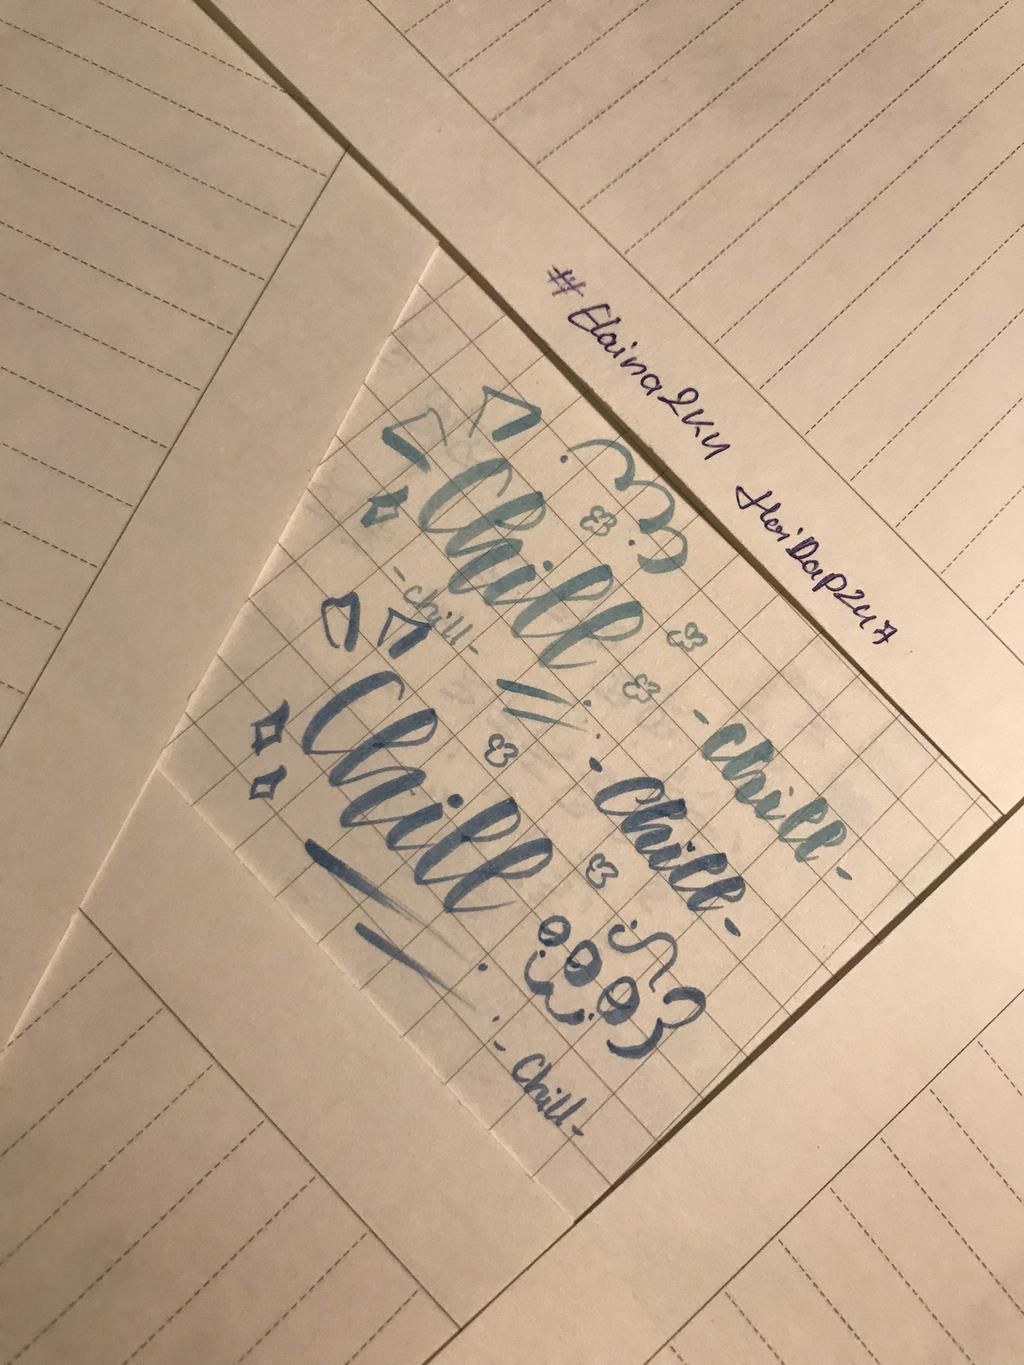 #Elaina2k4 HoiDap247
Chill
-chill-
-chill-
Chill
-chill-
-Chill-